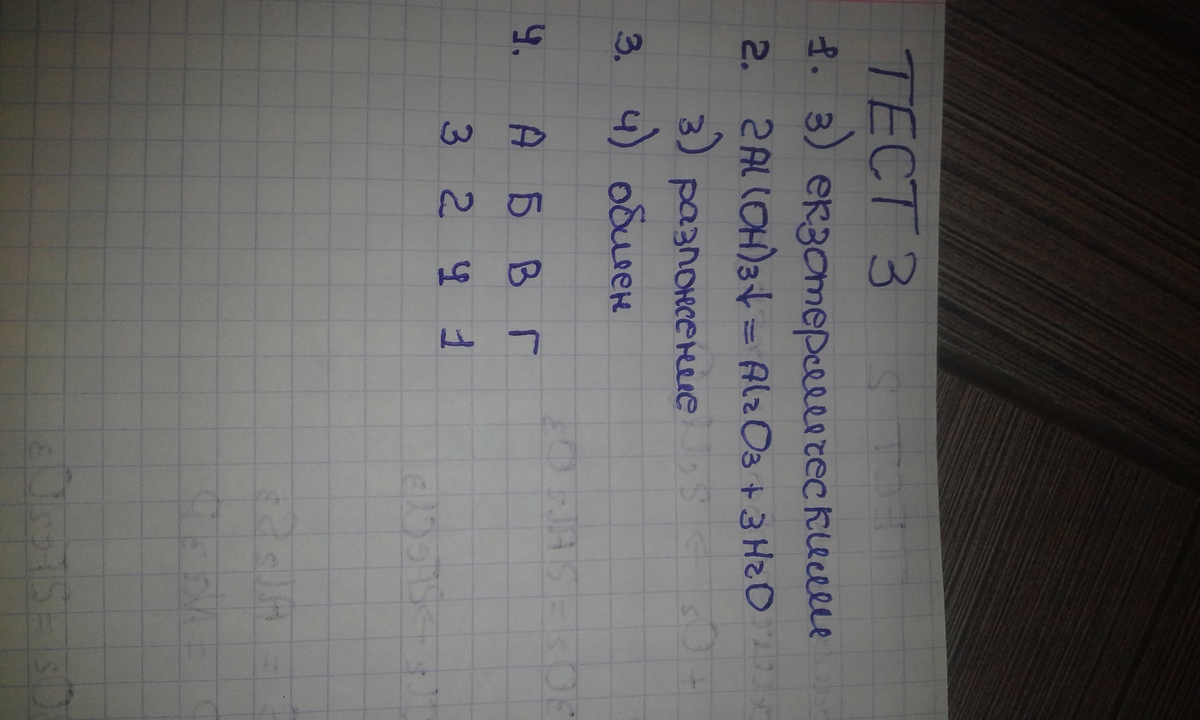 ТЕСТ 3
1. 3) екзотермическими
2. 2Al(OH)3↓ = Al2O3 + 3H2O
3) разложение
3. 4) обмен
4. А Б В Г
3 2 4 1